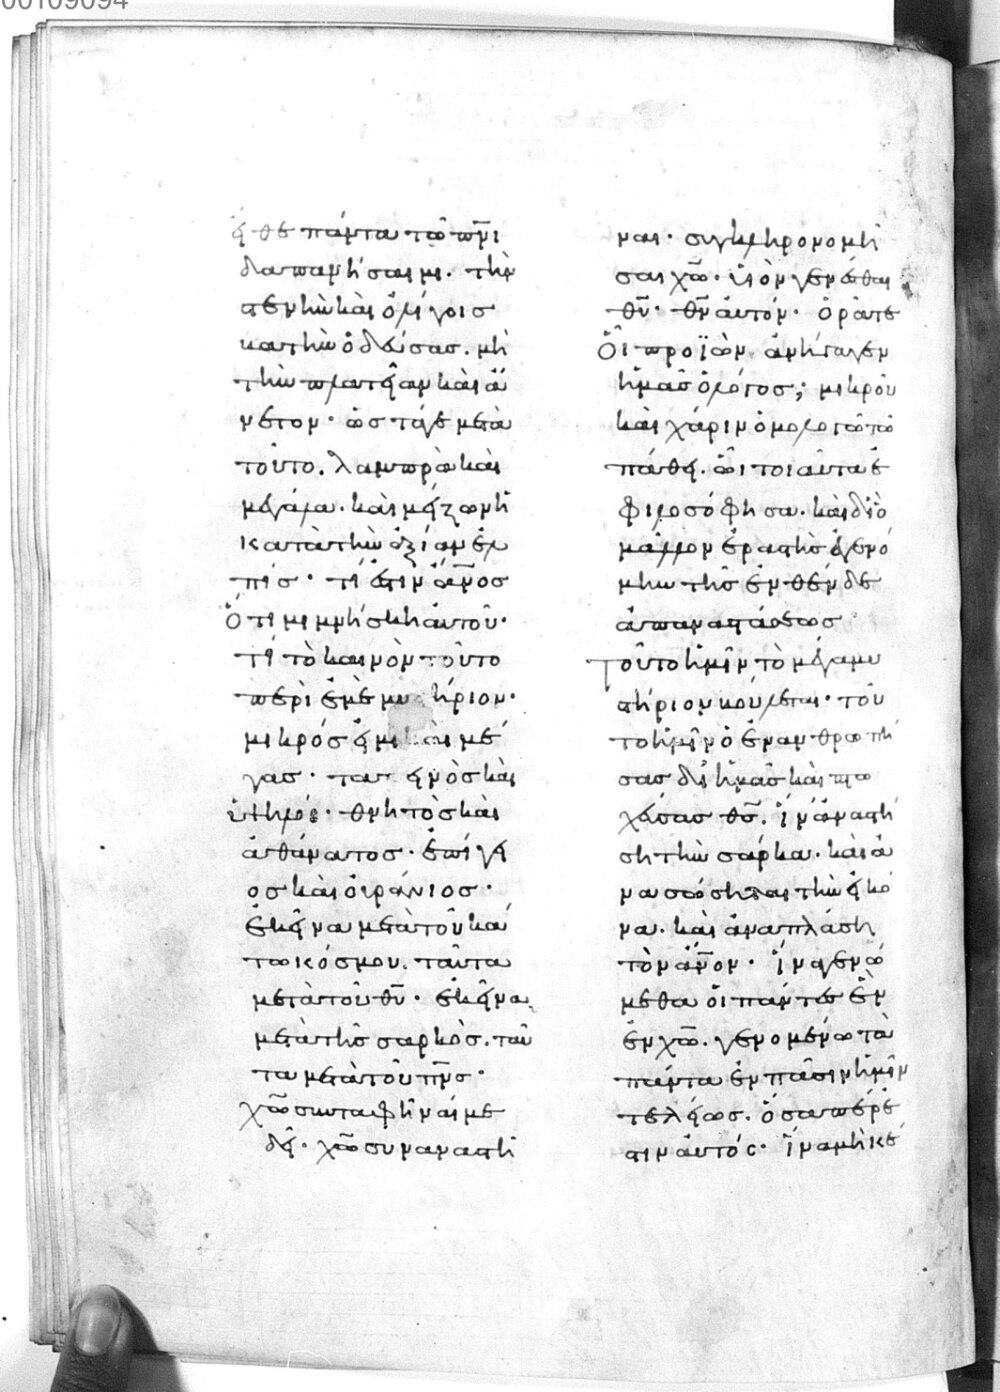 00109094
εἴθε πάντα τῶ πνι
δαπανήσαιμι. τὴν
στενὴν καὶ ὀλίγοις
κατὴν ὁδεύσας. μὴ
τὴν πλατεῖαν καὶ ἄ
νετον· ὡς τάγε μετὰ
τοῦτο. λαμπρὰ καὶ
μεγάλα. καὶ μείζων ἢ
κατὰ τὴν ἀξίαν ἐλ
πίς· τί ἐστιν ἄνος
ὅτι μιμνήσκη αὐτοῦ·
τί τὸ καινὸν τοῦτο
περὶ ἐμὲ μυστήριον·
μικρός εἰμι καὶ μέ
γας· ταπεινὸς καὶ
ὑψηλός· θνητὸς καὶ
ἀθάνατος· ἐπίγει
ος καὶ οὐράνιος·
ἐκεῖνα μετὰ τοῦ κά
τω κόσμου. ταῦτα
μετὰ τοῦ θυ· ἐκεῖνα
μετὰ τῆς σαρκὸς. ταῦ
τα μετὰ τοῦ πνς·
χῶ συνταφῆναί με
δεῖ· χῶ συναναστῆ
ναι· συγκληρονομῆ
σαι χῶ· υἱὸν γενέσθαι
θυ· θν αὐτόν· ὁρᾶτε
οἷ προϊὼν ἀνήγαγεν
ἡμᾶς ὁ λόγος; μικροῦ
καὶ χάριν ὁμολογῶ τῶ
πάθει. ὧι τοιαῦτα ἐ
φιλοσόφησα. καὶ διὸ
μᾶλλον ἐραστὴς ἐγενό
μην τῆς ἐνθένδε
ἀπαναστάσεως
Τοῦτο ἡμῖν τὸ μέγα μυ
στήριον βούλεται· τοῦ
το ἡμῖν ὁ ἐνανθρωπή
σας δι' ἡμᾶς καὶ πτω
χεύσας θς. ἵν' ἀναστή
ση τὴν σάρκα. καὶ ἀ
νασώσηται τὴν εἰκό
να. καὶ ἀναπλάση
τὸν ἄνον· ἵνα γενώ
μεθα οἱ πάντες ἓν
ἐν χῶ. γενομένω τὰ
πάντα ἐν πᾶσιν ἡμῖν
τελείως. ὅσα πέρ ἐ
στιν αὐτός· ἵνα μηκέ